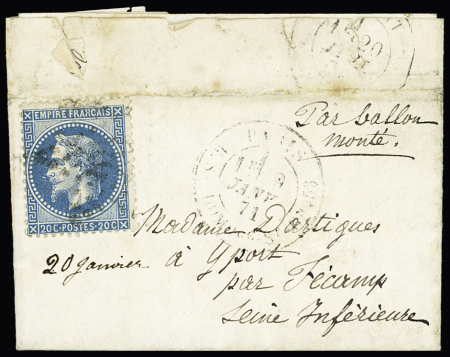 20
EMPIRE FRANCAIS
20 C·POSTES·20 C
Par ballon
monté.
PARIS
JANV
71
Madame Dartigues
20 janvier à Yport
par Fécamp
Seine Inférieure